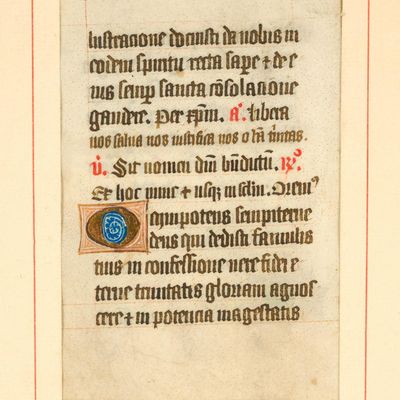 lustracione docuisti da nobis in
eodem spiritu recta sapere et de e
ius semper sancta consolacione
gaudere. Per xpm. a. libera
nos salua nos iustifica nos o bta trinitas.
v. Sit nomen dni bndictum. R.
Ex hoc nunc et usque in sclm. Orem9
Omnipotens sempiterne
deus qui dedisti famulis
tuis in confessione vere fidei e
terne trinitatis gloriam agnos
cere et in potencia magestatis